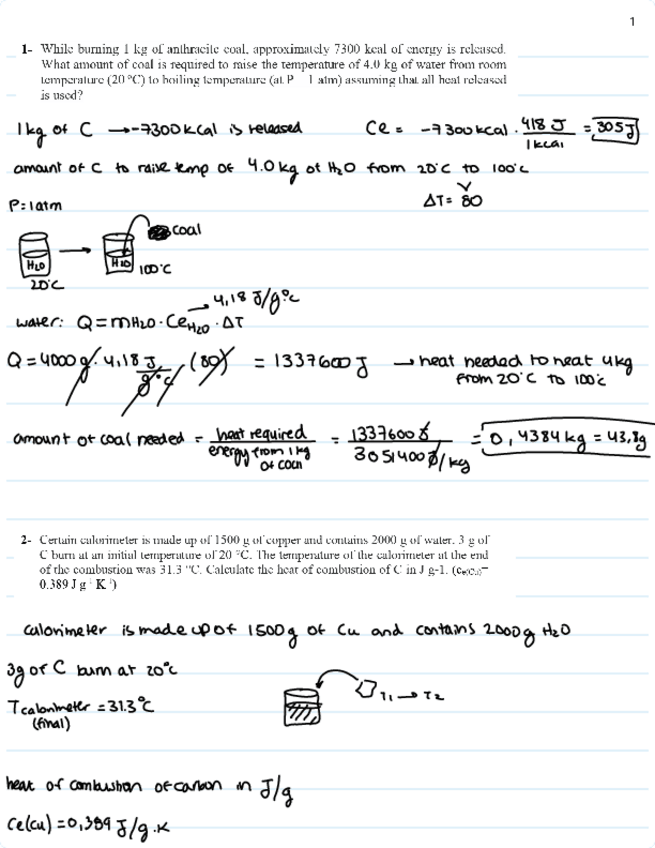 1
1- While burning 1 kg of anthracite coal, approximately 7300 kcal of energy is released.
What amount of coal is required to raise the temperature of 4.0 kg of water from room
temperature (20 °C) to boiling temperature (at P 1 atm) assuming that all heat released
is used?
1kg of C → -7300kcal is released Ce = -7300kcal · 418 J / 1kcal = 305J
amount of C to raise temp of 4.0kg of H2O from 20°C to 100°C
P=1atm ΔT= 80
coal
H2O → H2O 100°C
20°C
→ 4,18 J/g°C
water: Q=mH2O·CeH2O·ΔT
Q=4000g·4,18 J/g°C (80) = 1337600 J → heat needed to heat 4kg
from 20°C to 100°C
amount of coal needed = heat required / energy from 1kg of coal = 1337600 J / 3051400 J/kg = 0,4384kg = 43,8g
2- Certain calorimeter is made up of 1500 g of copper and contains 2000 g of water. 3 g of
C burn at an initial temperature of 20 °C. The temperature of the calorimeter at the end
of the combustion was 31.3 °C. Calculate the heat of combustion of C in J g-1. (ce(Cu)=
0.389 J g-1 K-1)
calorimeter is made up of 1500g of Cu and contains 2000g H2O
3g of C burn at 20°C
T1 → T2
Tcalorimeter = 31.3°C
(final)
heat of combustion of carbon in J/g
Ce(Cu) = 0,389 J/g·K